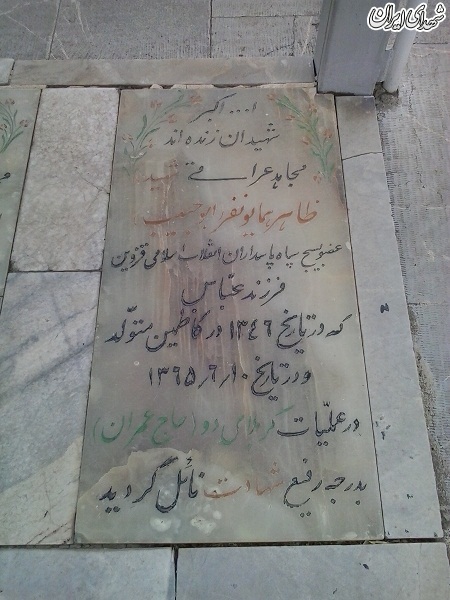 شهدای ایران
ا... اکبر
شهیدان زنده اند
مجاهد عراقی شهید
ظاهر همایونفر ابوحبیب
عضو بسیج سپاه پاسداران انقلاب اسلامی قزوین
فرزند عباس
که در تاریخ ۱۳۴۶ در کاظمین متولد
و در تاریخ ۱۳۶۵/۶/۱۰
در عملیات کربلای دو (حاج عمران)
بدرجه رفیع شهادت نائل گردید